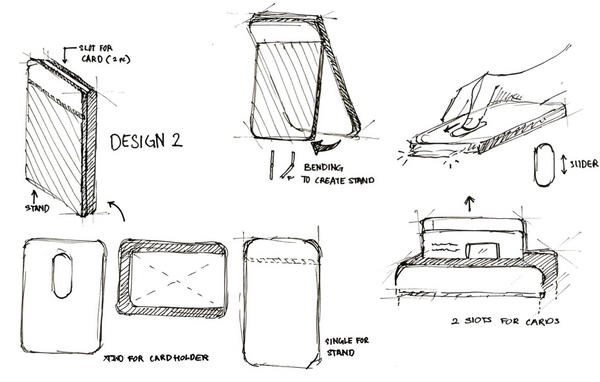 SLOT FOR
CARD (2 PC)
DESIGN 2
STAND
BENDING
TO CREATE STAND
SLIDER
FOR CARD HOLDER
SINGLE FOR
STAND
2 SLOTS FOR CARDS